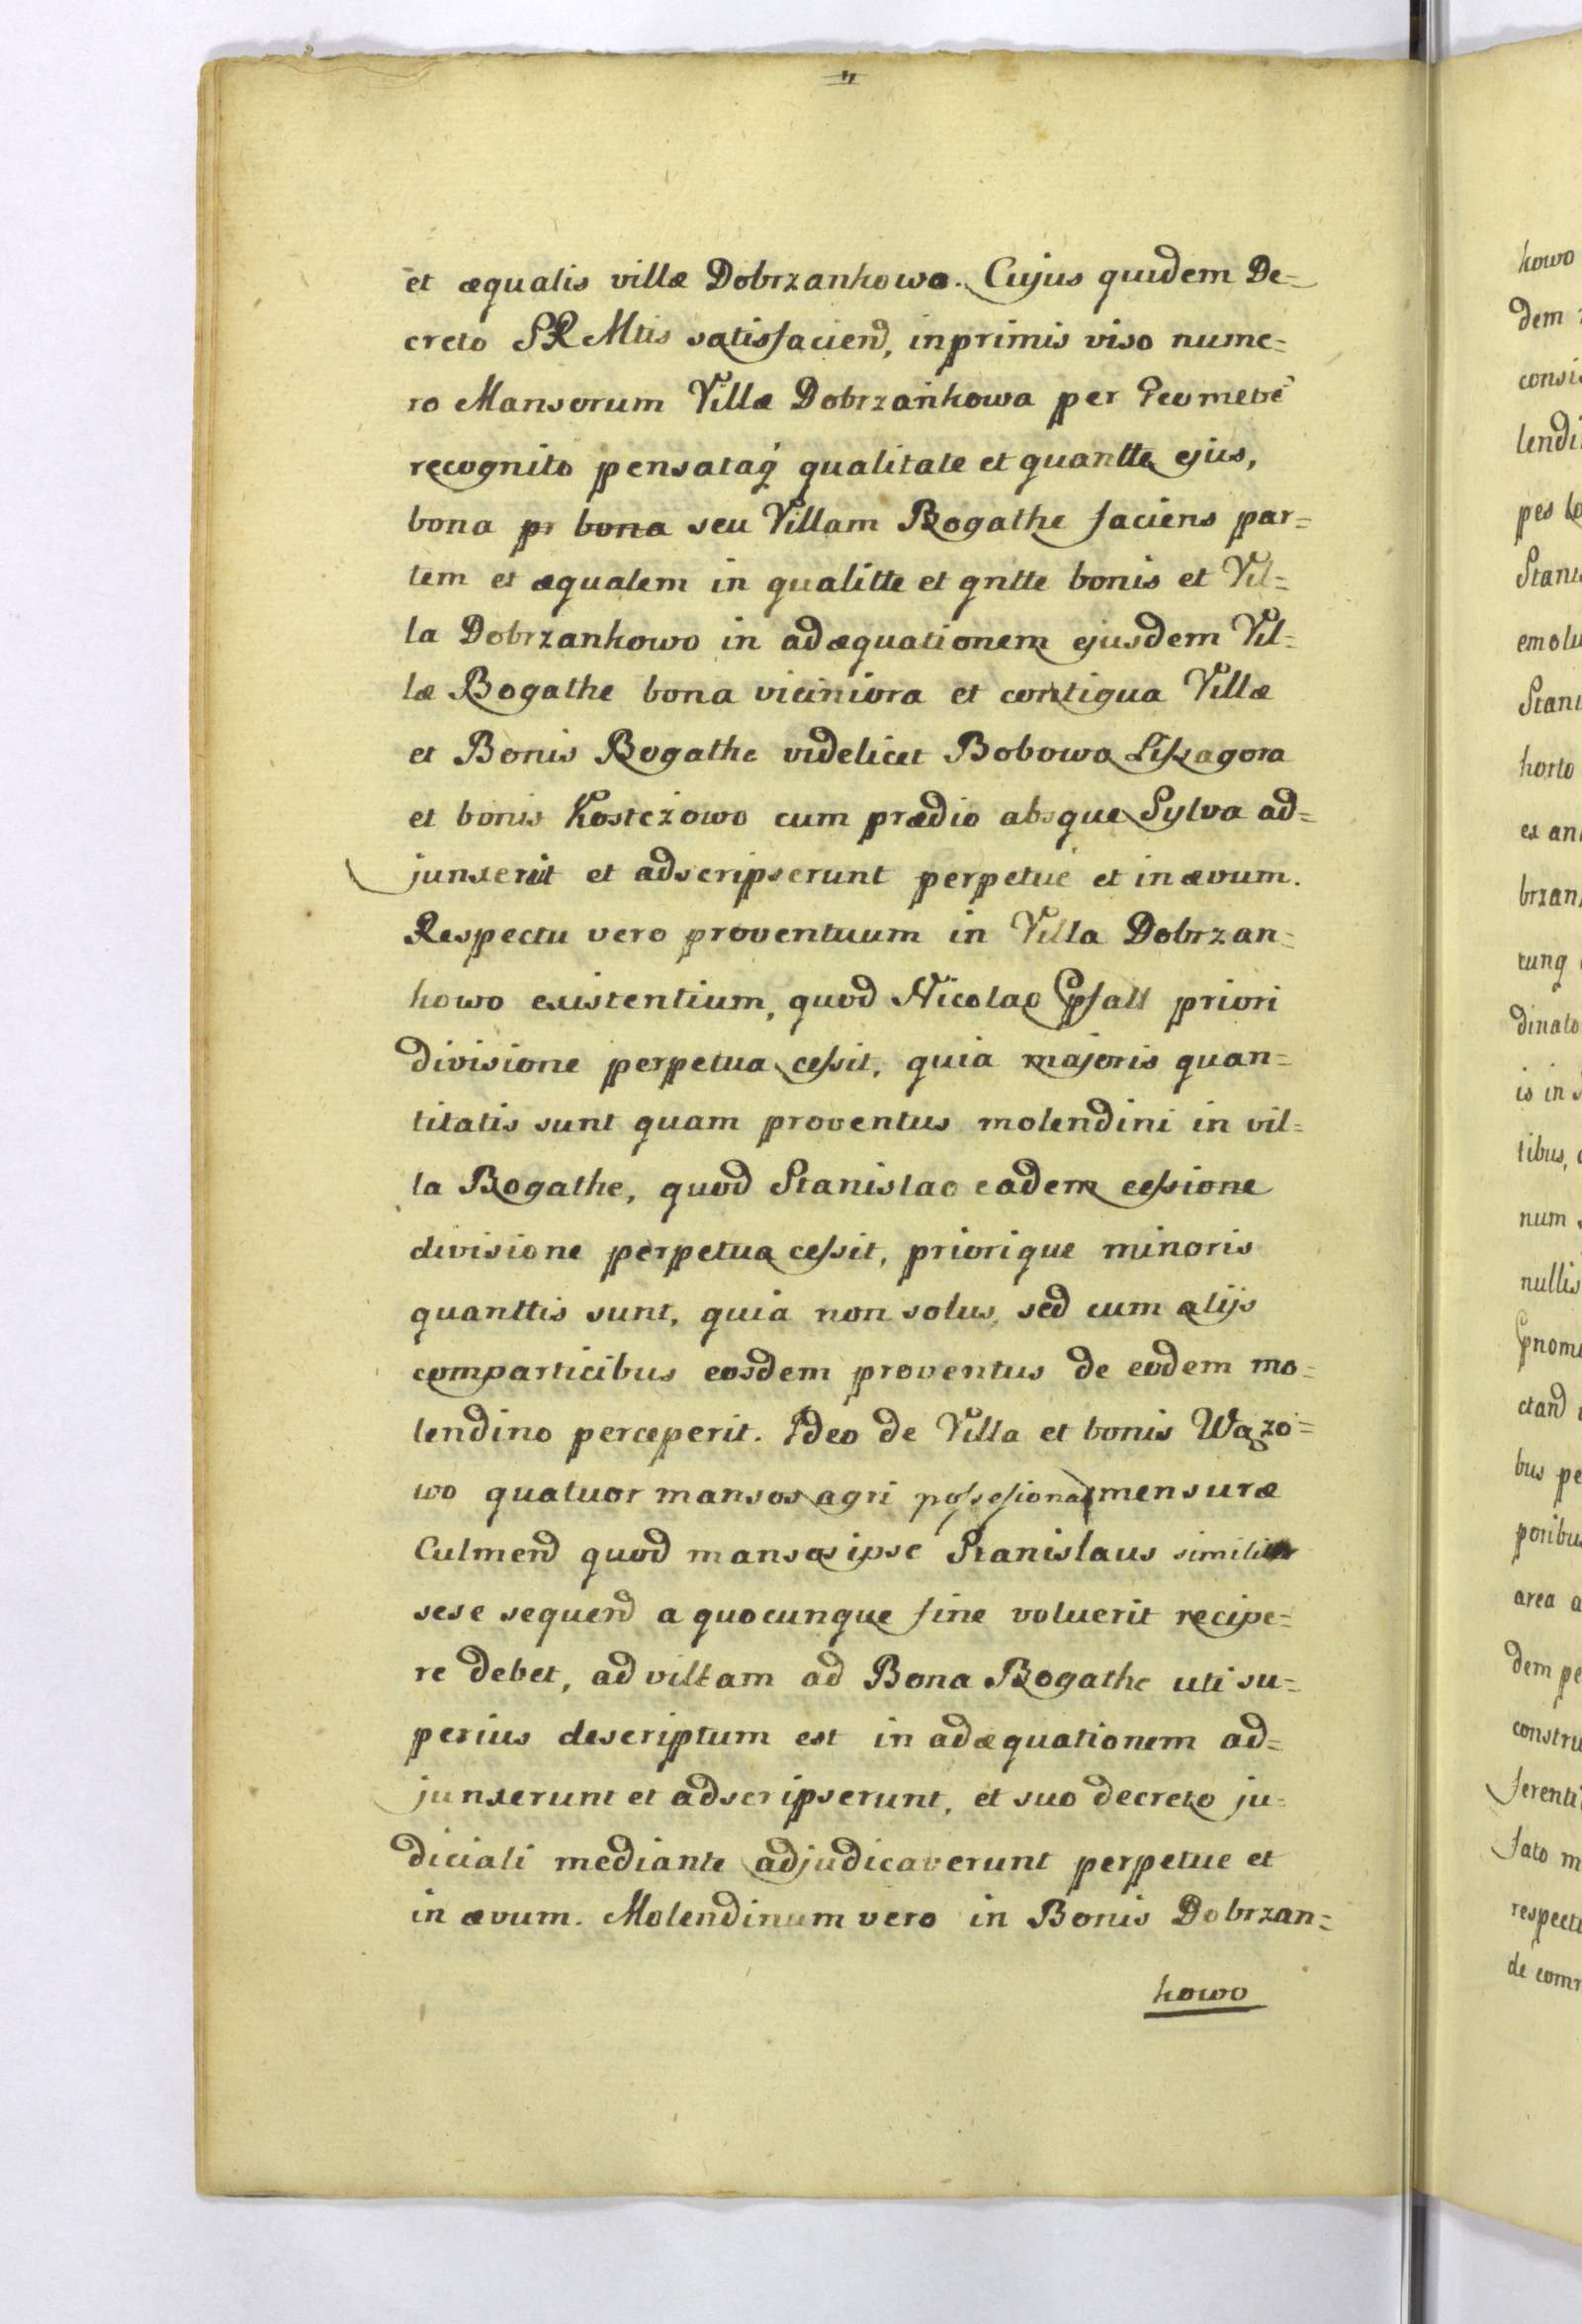 et æqualis villæ Dobrzankowo. Cujus quidem De=
creto SRMtis satisfaciend, inprimis viso nume=
ro Mansorum Villæ Dobrzankowa per Geometrē
recognito pensataq́ qualitate et quantte ejus,
bona pr bona seu Villam Bogathe faciens par=
tem et æqualem in qualitte et qntte bonis et Vil=
la Dobrzankowo in adæquationem ejusdem Vil=
læ Bogathe bona viciniora et contigua Villæ
et Bonis Bogathe videlicet Bobowo Liszagora
et bonis Kosteżowo cum prædio absque Sylva ad=
junxerūt et adscripserunt perpetue et in ævum.
Respectu vero proventuum in Villa Dobrzan=
kowo existentium, quod Nicolao Cpsatt priori
divisione perpetua cessit, quia majoris quan=
titatis sunt quam proventus molendini in vil=
la Bogathe, quod Stanislao eadem cessione
divisione perpetua cessit, priorique minoris
quanttis sunt, quia non solus, sed cum alijs
comparticibus eosdem proventus de eodem mo=
lendino perceperit. Ideo de Villa et bonis Wazo=
wo quatuor mansos agri possesionat mensuræ
Culmend quod mansos ipse Stanislaus similiter
sese sequend a quocunque fine voluerit recipe=
re debet, ad villam ad Bona Bogathe uti su=
perius descriptum est in adæquationem ad=
junxerunt et adscripserunt, et suo decreto ju=
diciali mediante adjudicaverunt perpetue et
in ævum. Molendinum vero in Bonis Dobrzan=
kowo
kowo
dem
consi
lendi
pes
Stani
emolu
Stani
horto
et an
brzan
cunq
dinato
is in
tibus,
num
nullis
ctand
bus pe
poribu
area a
dem pe
constru
ferenti
fato m
respectu
de com